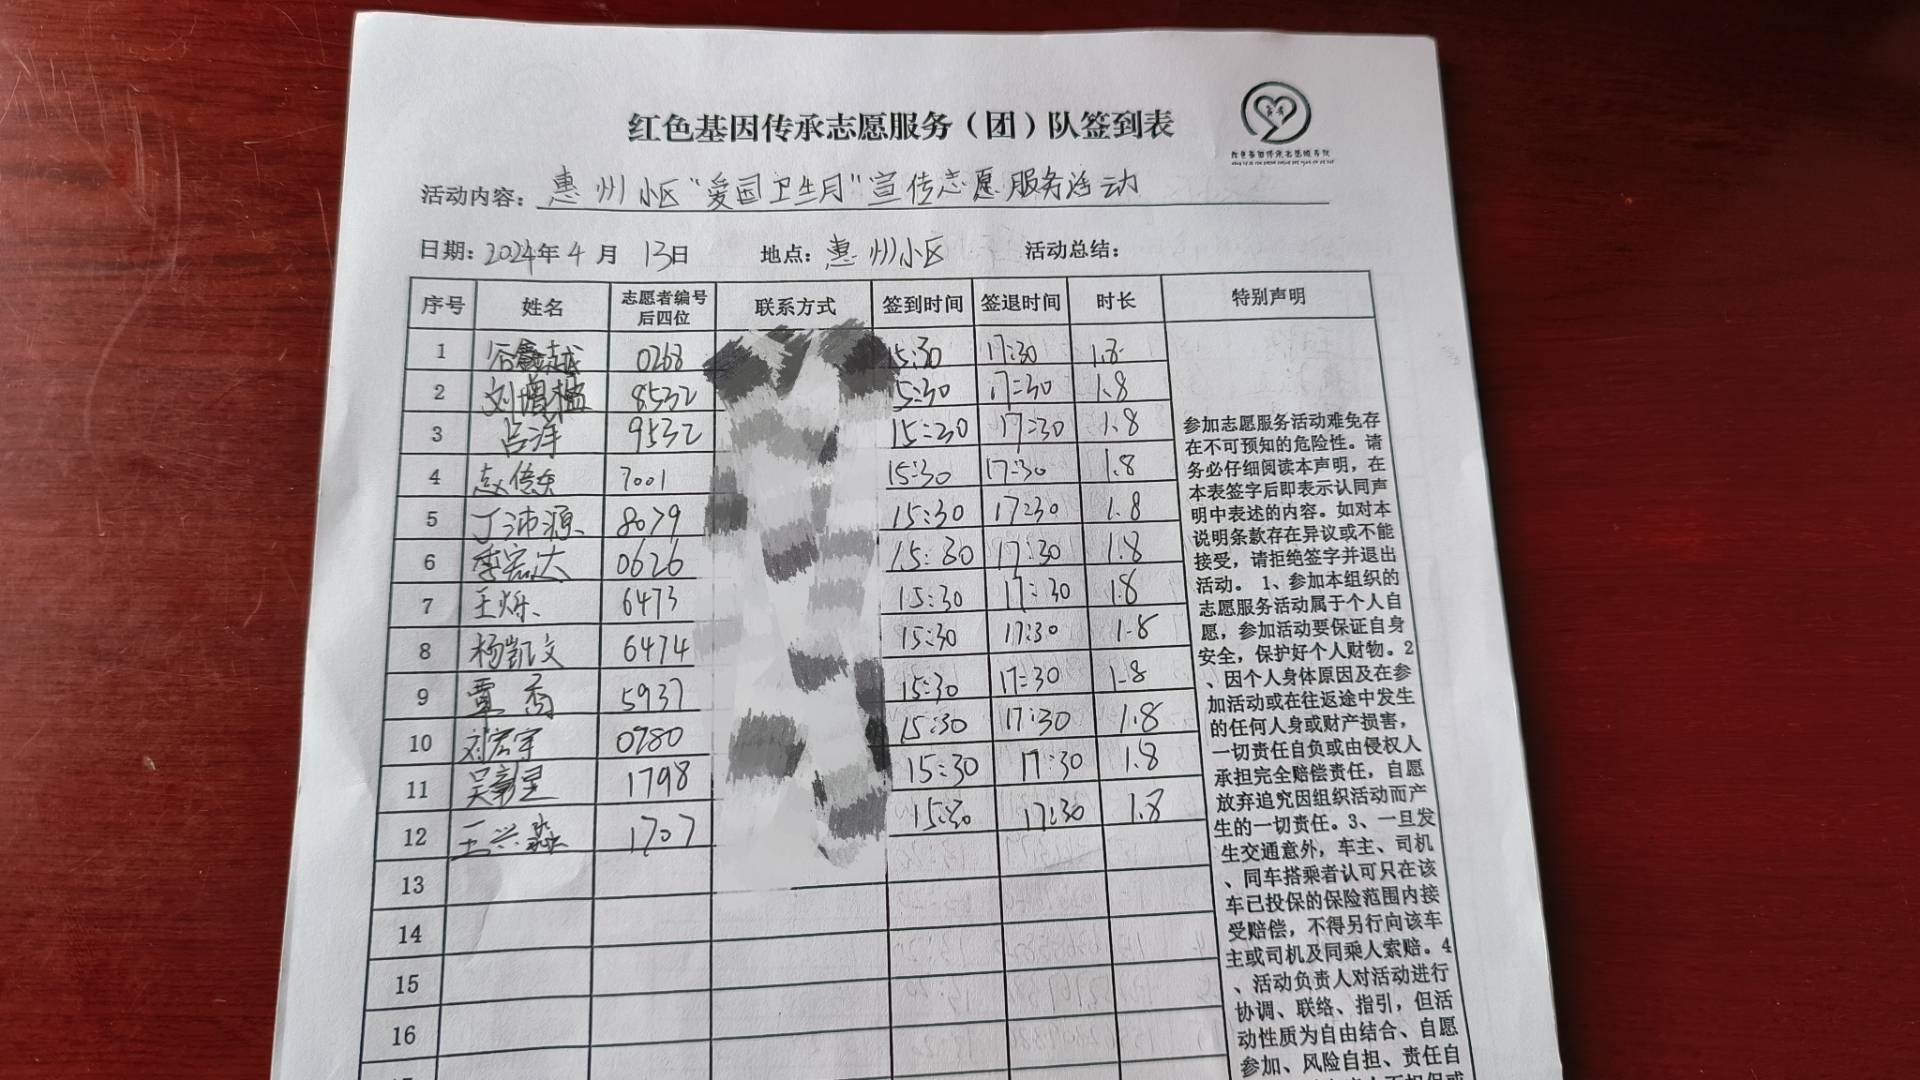 红色基因传承志愿服务（团）队签到表
活动内容：惠州小区“爱国卫生月”宣传志愿服务活动
日期：2024年4月13日 地点：惠州小区 活动总结：
序号 姓名 志愿者编号后四位 联系方式 签到时间 签退时间 时长 特别声明
1 0268 15:30 17:30 1.8
2 刘增楹 8532 15:30 17:30 1.8
3 吕洋 9532 15:30 17:30 1.8
4 7001 15:30 17:30 1.8
5 丁沛源 8079 15:30 17:30 1.8
6 李宏达 0626 15:30 17:30 1.8
7 王烁 6473 15:30 17:30 1.8
8 杨凯文 6474 15:30 17:30 1.8
9 覃 5937 15:30 17:30 1.8
10 刘宏宇 0980 15:30 17:30 1.8
11 吴彰星 1798 15:30 17:30 1.8
12 王兴淼 1707 15:30 17:30 1.8
13
14
15
16
参加志愿服务活动难免存
在不可预知的危险性。请
务必仔细阅读本声明，在
本表签字后即表示认同声
明中表述的内容。如对本
说明条款存在异议或不能
接受，请拒绝签字并退出
活动。 1、参加本组织的
志愿服务活动属于个人自
愿，参加活动要保证自身
安全，保护好个人财物。2
、因个人身体原因及在参
加活动或在往返途中发生
的任何人身或财产损害，
一切责任自负或由侵权人
承担完全赔偿责任，自愿
放弃追究因组织活动而产
生的一切责任。3、一旦发
生交通意外，车主、司机
、同车搭乘者认可只在该
车已投保的保险范围内接
受赔偿，不得另行向该车
主或司机及同乘人索赔。4
、活动负责人对活动进行
协调、联络、指引，但活
动性质为自由结合、自愿
参加、风险自担、责任自